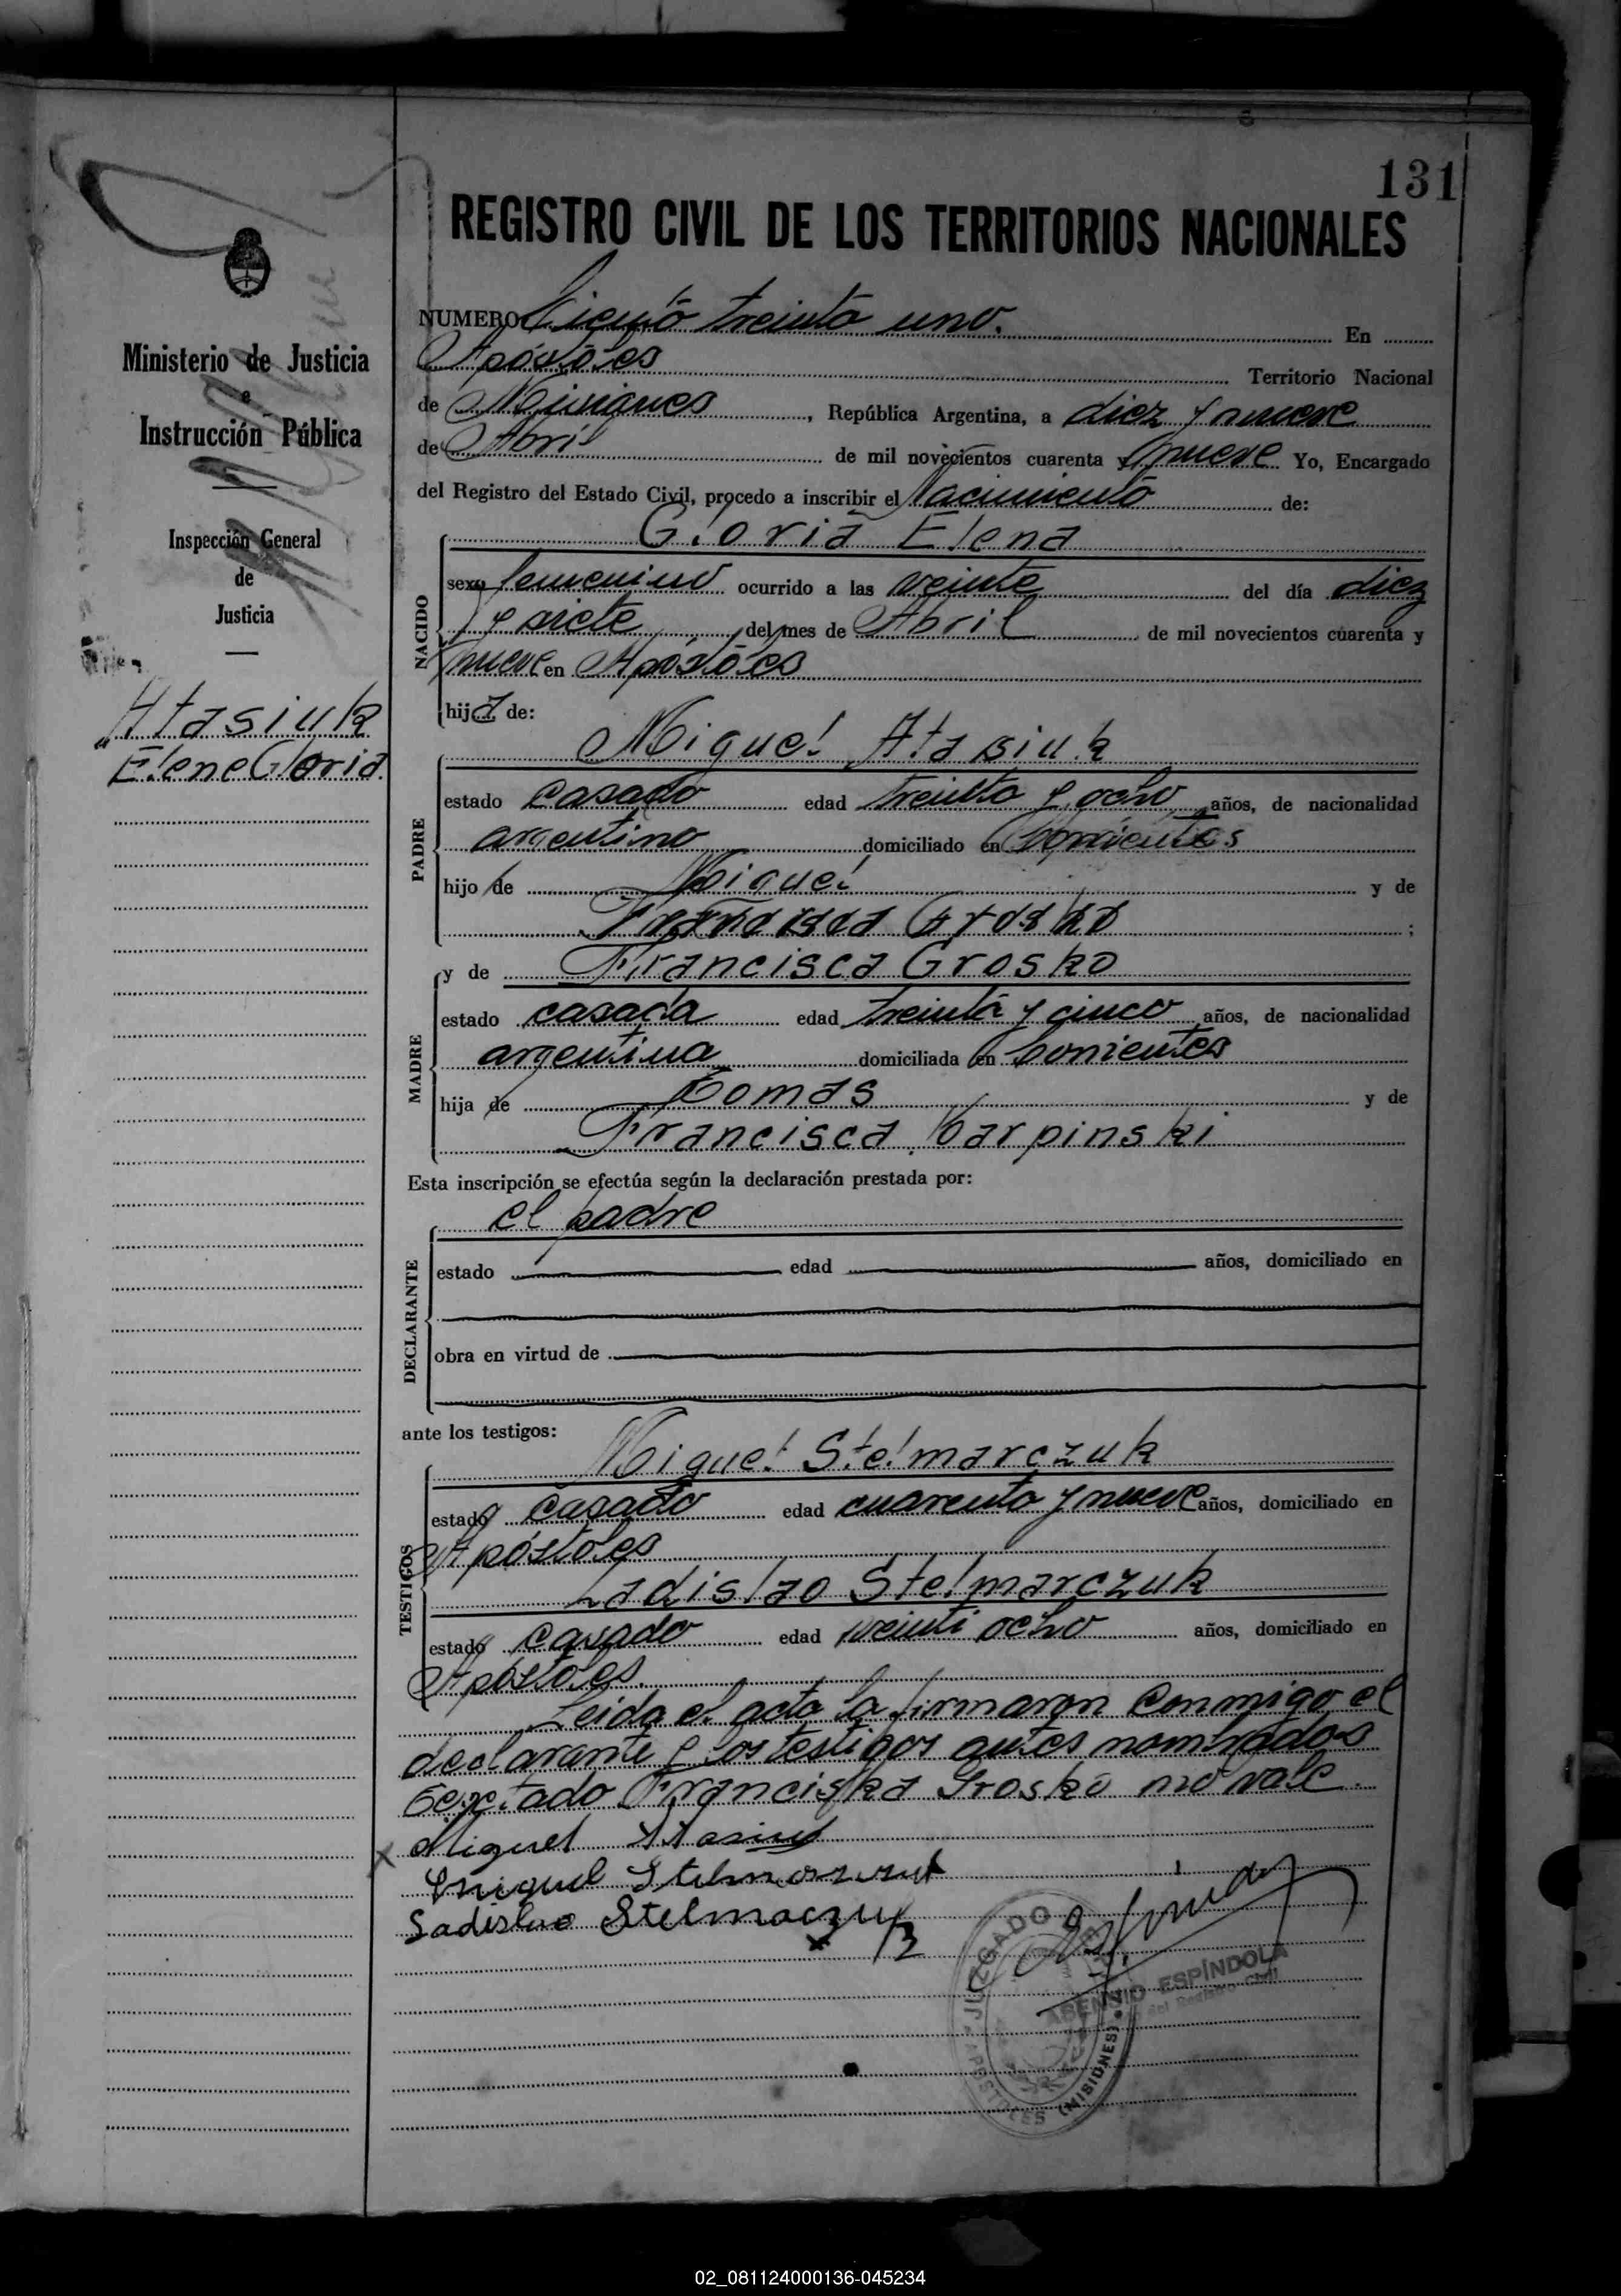 131
REGISTRO CIVIL DE LOS TERRITORIOS NACIONALES
Ministerio de Justicia
e
Instrucción Pública
Inspección General
de
Justicia
Atasiuk
Elene Gloria
NUMERO Ciento treinta uno. En
Apóstoles Territorio Nacional
de Misiones, República Argentina, a diez y nueve
de Abril de mil novecientos cuarenta y nueve Yo, Encargado
del Registro del Estado Civil, procedo a inscribir el Nacimiento de:
Gloria Elena
NACIDO
sexo femenino ocurrido a las veinte del día diez
y siete del mes de Abril de mil novecientos cuarenta y
nueve en Apóstoles
hija de:
Miguel Atasiuk
PADRE
estado casado edad treinta y ocho años, de nacionalidad
argentino domiciliado en Corrientes
hijo de Miguel y de
;
y de Francisca Grosko
MADRE
estado casada edad treinta y cinco años, de nacionalidad
argentina domiciliada en Corrientes
hija de Tomas y de
Francisca Karpinski
Esta inscripción se efectúa según la declaración prestada por:
el padre
DECLARANTE
estado edad años, domiciliado en
obra en virtud de
ante los testigos:
Miguel Stelmarczuk
TESTIGOS
estado casado edad cuarenta y nueve años, domiciliado en
Apóstoles
Ladislao Stelmarczuk
estado casado edad veinti ocho años, domiciliado en
Apóstoles.
Leida el acta la firmaron conmigo el
declarante y los testigos antes nombrados
Testado Franciska Grosko no vale.
Miguel Atasiuk
Miguel Stelmaszczuk
Ladislao Stelmaczuk
JUZGADO
APOSTOLES (MISIONES)
ASENSIO ESPÍNDOLA
del Registro Civil
02_081124000136-045234